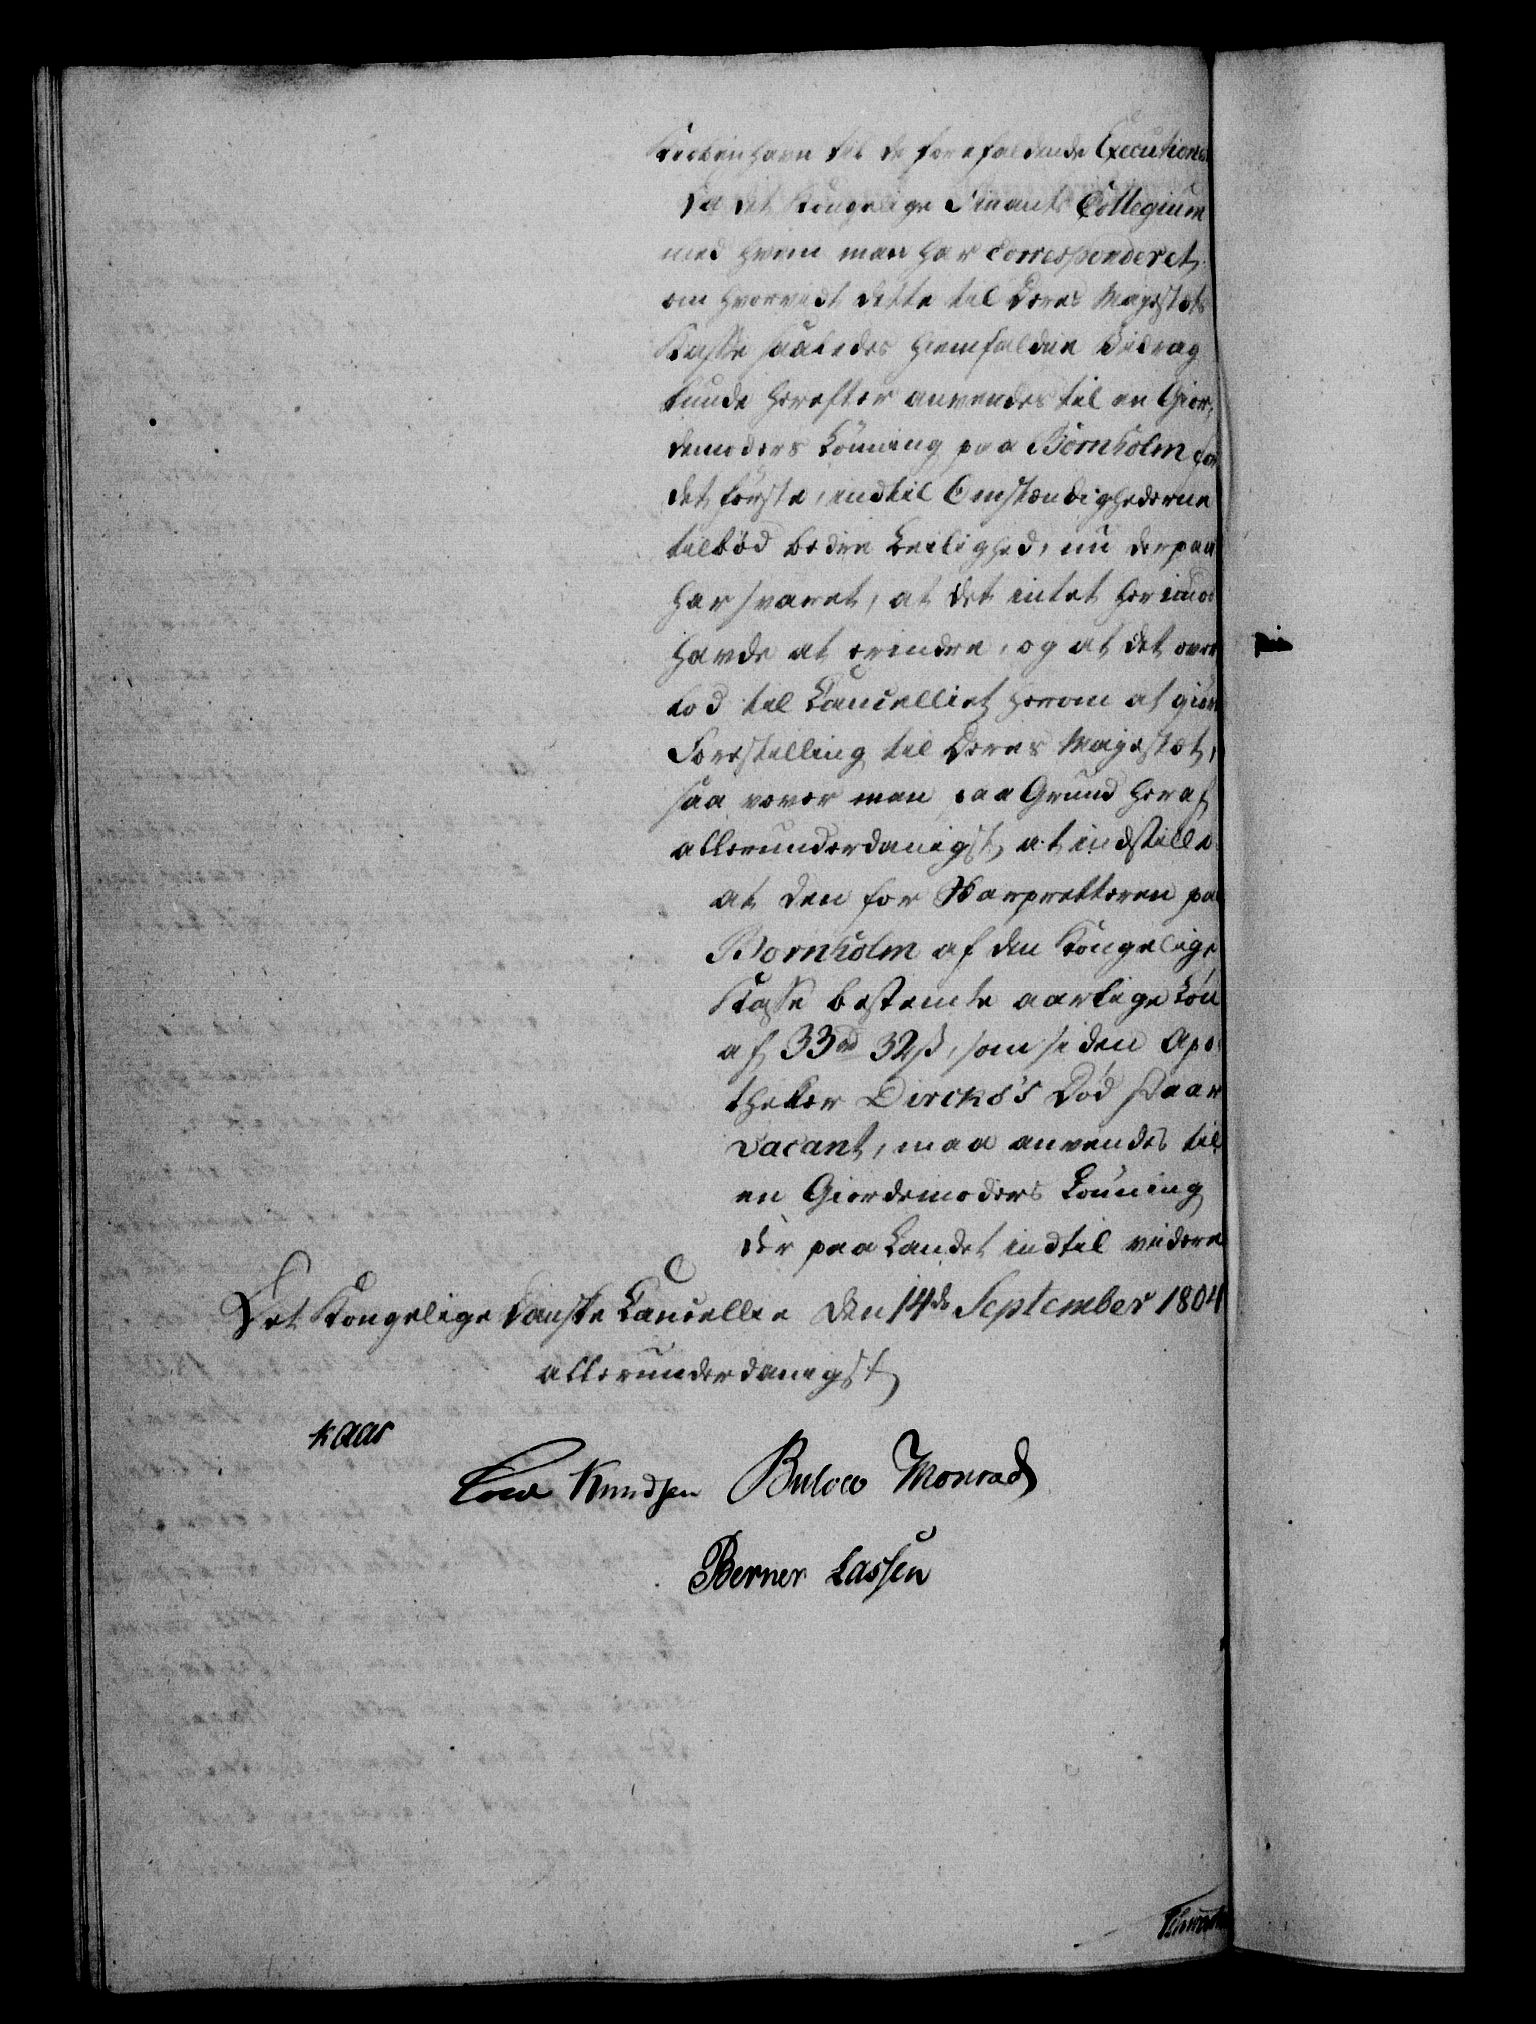 Kiøbenhavn til de forefaldende Executioner
Da det Kongelige Finants Collegium
med hvem man har Corresponderet
om hvorvidt dette til Deres Majestæts
Kasse saaledes hiemfaldne Bidrag
kunde herefter anvendes til en Gior,
demoders Lønning paa Bornholm for
det første, indtil Omstændighederne
tilbød bedre Leilighed, nu derpaa
har svaret, at det intet herimod
havde at erindre, og at det over
lod til Cancelliet herom at giøre
Forestilling til Deres Majestæt,
saa vover man paa Grund heraf
allerunderdanigst at indstille
at den for Skarpretteren paa
Bornholm af den Kongelige
Kasse bestemte aarlige Løn
af 33 rd 32 ß, som siden Apo
theker Dircks's Død staar
vacant, maa anvendes til
en Giordemoders Lønning
der paa Landet indtil videre
Det Kongelige Danske Cancellie den 14de September 1804
allerunderdanigst
Kaas
Cold Knudsen Bulow Monrad
Berner Lassen